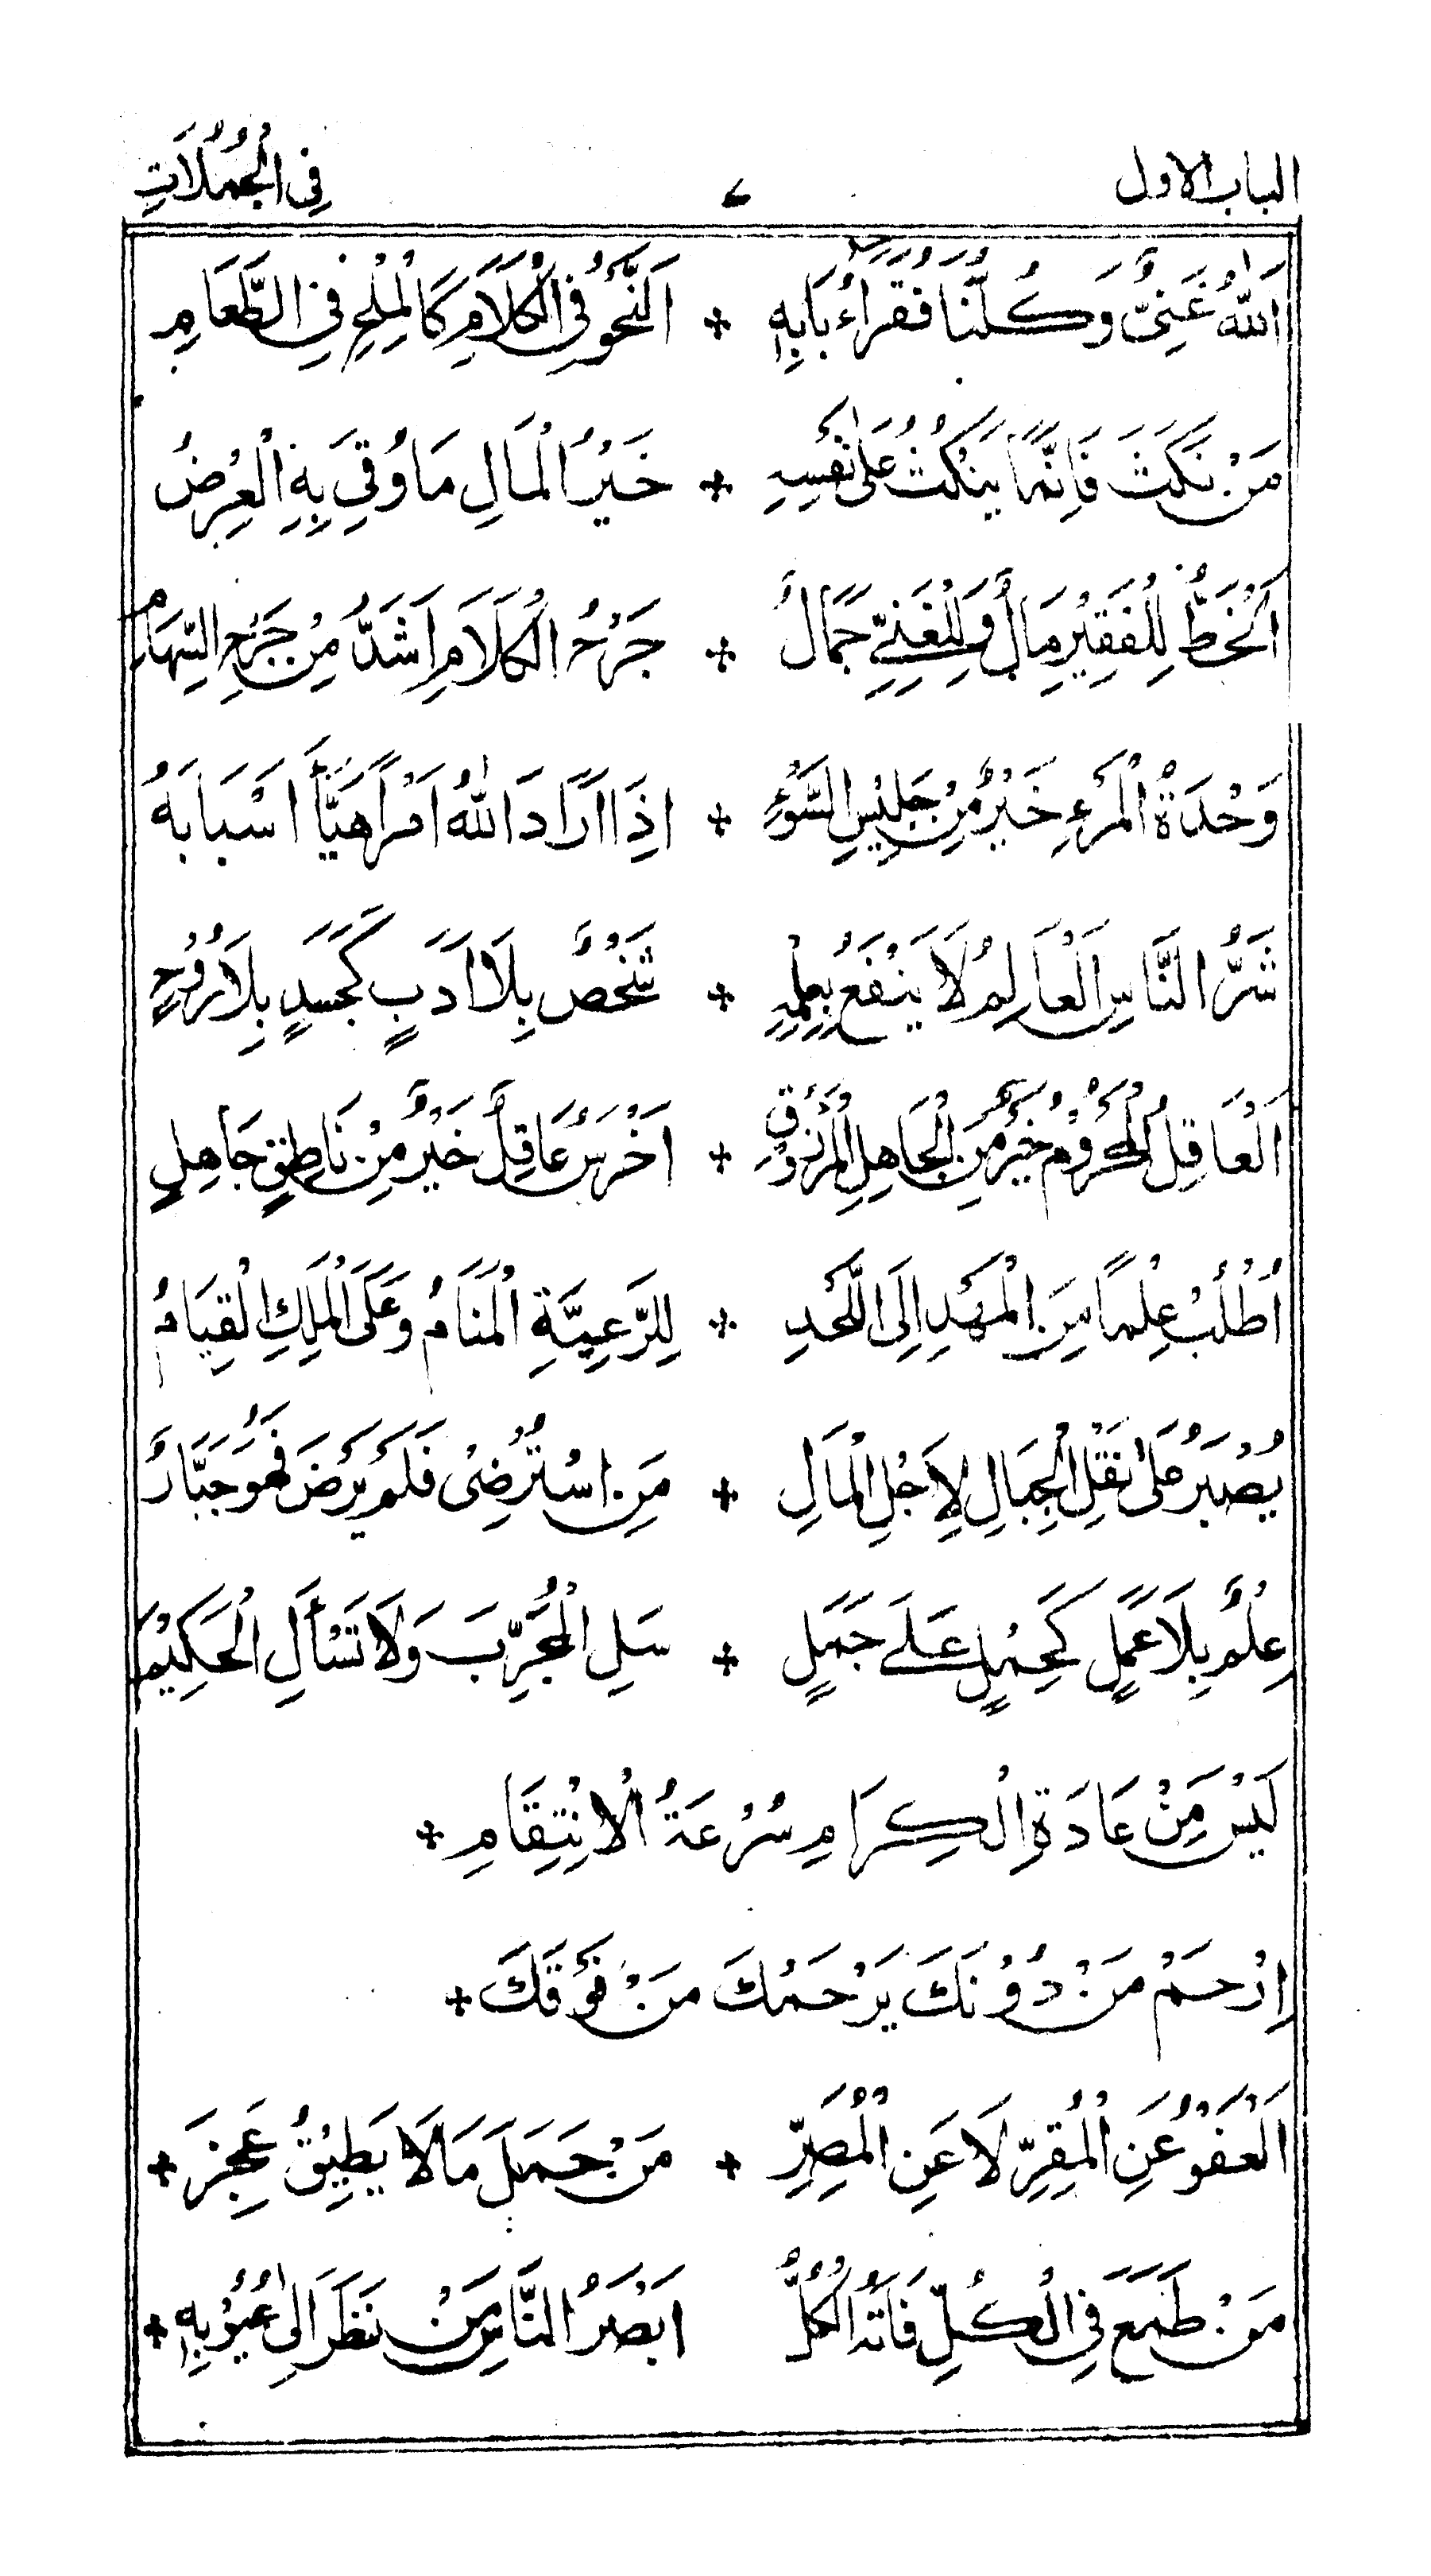 الباب الاول ٧ فِي الْجُمُلَاتِ
اَللّٰهُ غَنِيٌّ وَكُلُّنَا فُقَرَاءُ بَابِهٖ + اَلنَّحْوُ فِي الْكَلَامِ كَالْمِلْحِ فِي الطَّعَامِ
مَنْ نَكَثَ فَاِنَّمَا يَنْكُثُ عَلٰى نَفْسِهٖ + خَيْرُ الْمَالِ مَا وُقِيَ بِهِ الْعِرْضُ
اَلْخَطُّ لِلْفَقِيْرِ مَالٌ وَلِلْغَنِيِّ جَمَالٌ + جَرْحُ الْكَلَامِ اَشَدُّ مِنْ جَرْحِ السِّهَامِ
وَحْدَةُ الْمَرْءِ خَيْرٌ مِنْ جَلِيْسِ السُّوْءِ + اِذَا اَرَادَ اللّٰهُ اَمْرًا هَيَّأَ اَسْبَابَهُ
شَرُّ النَّاسِ الْعَالِمُ لَا يَنْفَعُ بِعِلْمِهٖ + شَخْصٌ بِلَا اَدَبٍ كَجَسَدٍ بِلَا رُوْحٍ
اَلْعَاقِلُ الْمَحْرُوْمُ خَيْرٌ مِنَ الْجَاهِلِ الْمَرْزُوْقِ + اَخْرَسُ عَاقِلٌ خَيْرٌ مِنْ نَاطِقٍ جَاهِلٍ
اُطْلُبْ عِلْمًا مِنَ الْمَهْدِ اِلَى اللَّحْدِ + لِلرَّعِيَّةِ الْمَنَامُ وَعَلَى الْمَلِكِ الْقِيَامُ
يُصْبَرُ عَلٰى نَقْلِ الْجِبَالِ لِاَجْلِ الْمَالِ + مَنِ اسْتُرْضِيَ فَلَمْ يَرْضَ فَهُوَ جَبَّارٌ
عِلْمٌ بِلَا عَمَلٍ كَحِمْلٍ عَلَى جَمَلٍ + سَلِ الْمُجَرِّبَ وَلَا تَسْأَلِ الْحَكِيْمَ
لَيْسَ مِنْ عَادَةِ الْكِرَامِ سُرْعَةُ الْاِنْتِقَامِ +
اِرْحَمْ مَنْ دُوْنَكَ يَرْحَمْكَ مَنْ فَوْقَكَ +
اَلْعَفْوُ عَنِ الْمُقِرِّ لَا عَنِ الْمُصِرِّ + مَنْ حَمَلَ مَا لَا يَطِيْقُ عَجِزَ +
مَنْ طَمَعَ فِي الْكُلِّ فَاتَهُ الْكُلُّ اَبْصَرُ النَّاسِ مَنْ نَظَرَ اِلٰى عُيُوْبِهٖ +